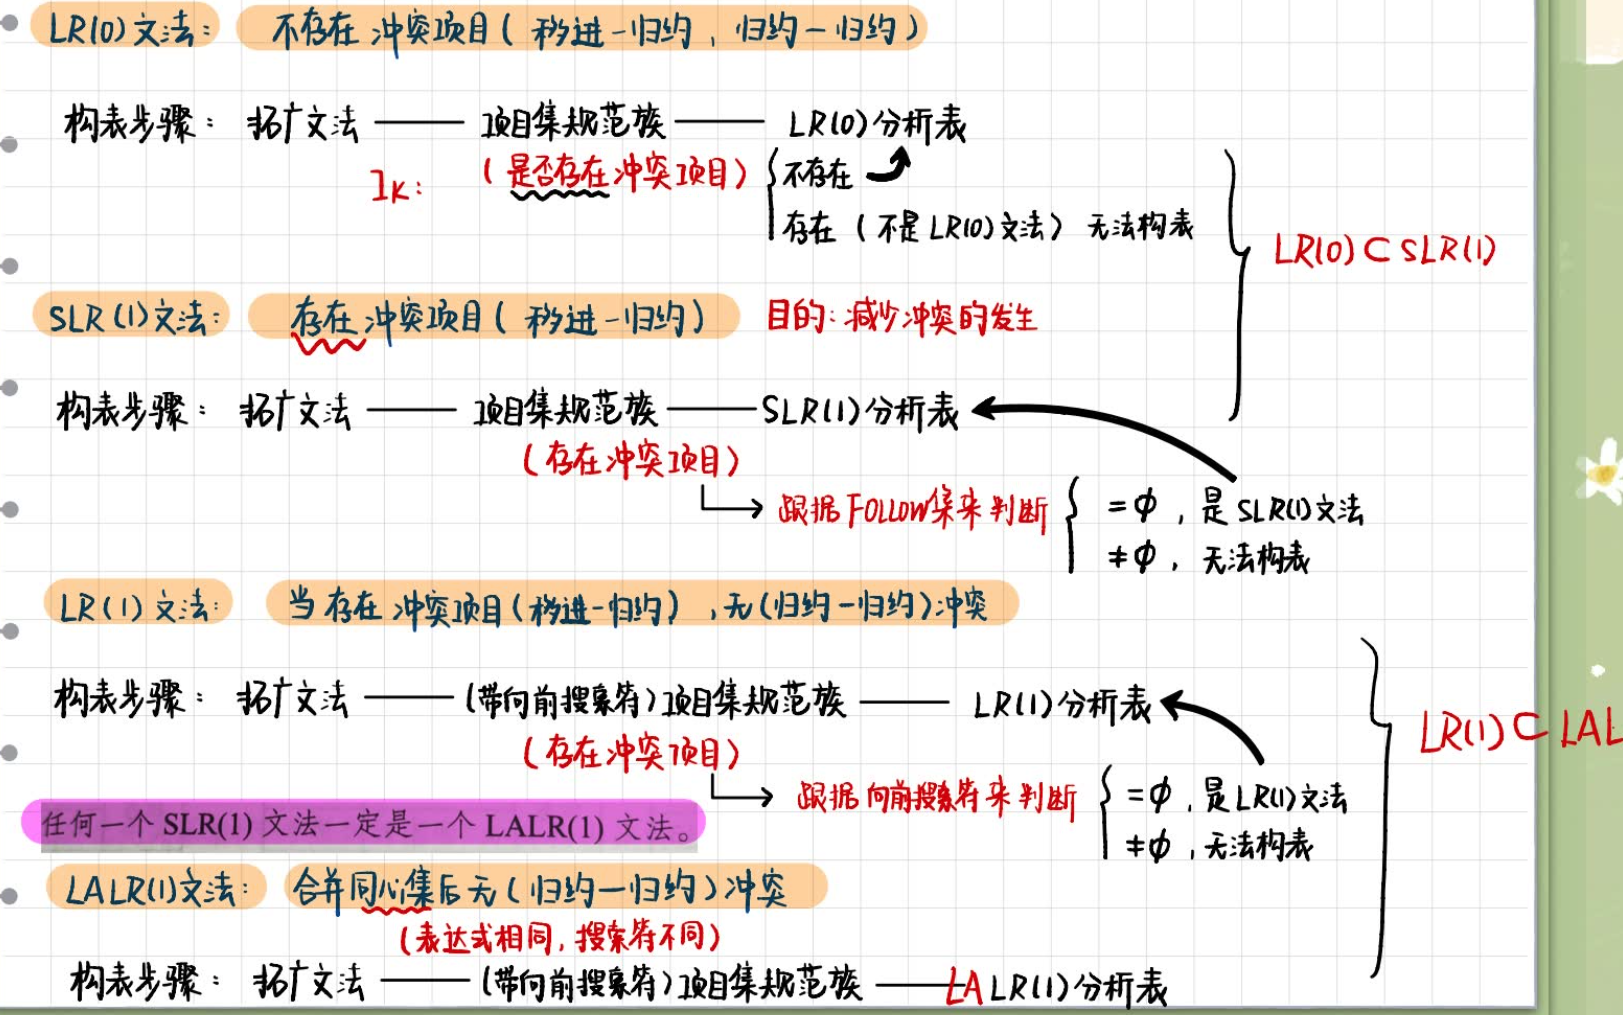 LR(0)文法: 不存在冲突项目(移进-归约,归约-归约)
构表步骤: 拓广文法 —— 项目集规范族 —— LR(0)分析表
IK: (是否存在冲突项目) { 不存在
存在(不是LR(0)文法) 无法构表
LR(0)⊂SLR(1)
SLR(1)文法: 存在冲突项目(移进-归约) 目的:减少冲突的发生
构表步骤: 拓广文法 —— 项目集规范族 —— SLR(1)分析表
(存在冲突项目)
跟据FOLLOW集来判断 { =φ, 是SLR(1)文法
≠φ, 无法构表
LR(1)文法: 当存在冲突项目(移进-归约),无(归约-归约)冲突
构表步骤: 拓广文法 —— (带向前搜索符)项目集规范族 —— LR(1)分析表
(存在冲突项目)
LR(1)⊂LAL
跟据向前搜索符来判断 { =φ, 是LR(1)文法
≠φ, 无法构表
任何一个 SLR(1) 文法一定是一个 LALR(1) 文法。
LALR(1)文法: 合并同心集后无(归约-归约)冲突
(表达式相同,搜索符不同)
构表步骤: 拓广文法 —— (带向前搜索符)项目集规范族 —— LALR(1)分析表